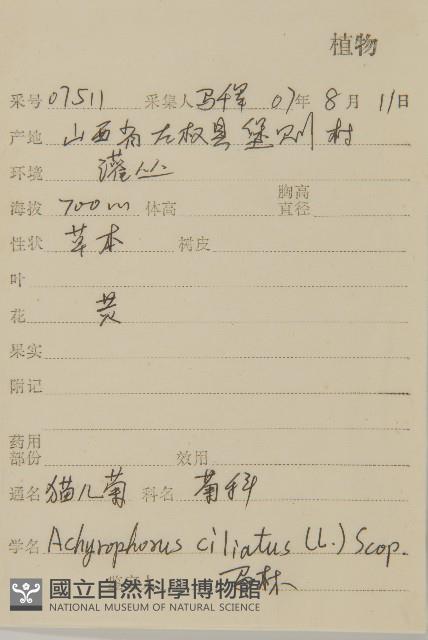 植物
采号 07511 采集人 07年 8月 11日
产地 山西省左权县堡则村
环境 灌丛
海拔 700m 体高 胸高直径
性状 草本 树皮
叶
花 黄
果实
附记
药用部份 效用
通名 猫儿菊 科名 菊科
学名 Achyrophorus ciliatus (L.) Scop.
國立自然科學博物館
NATIONAL MUSEUM OF NATURAL SCIENCE